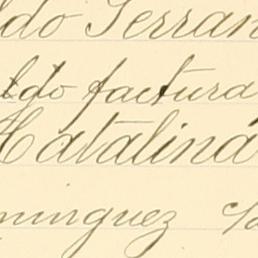 ldo Serran
ldo factura
Catalina
minguez